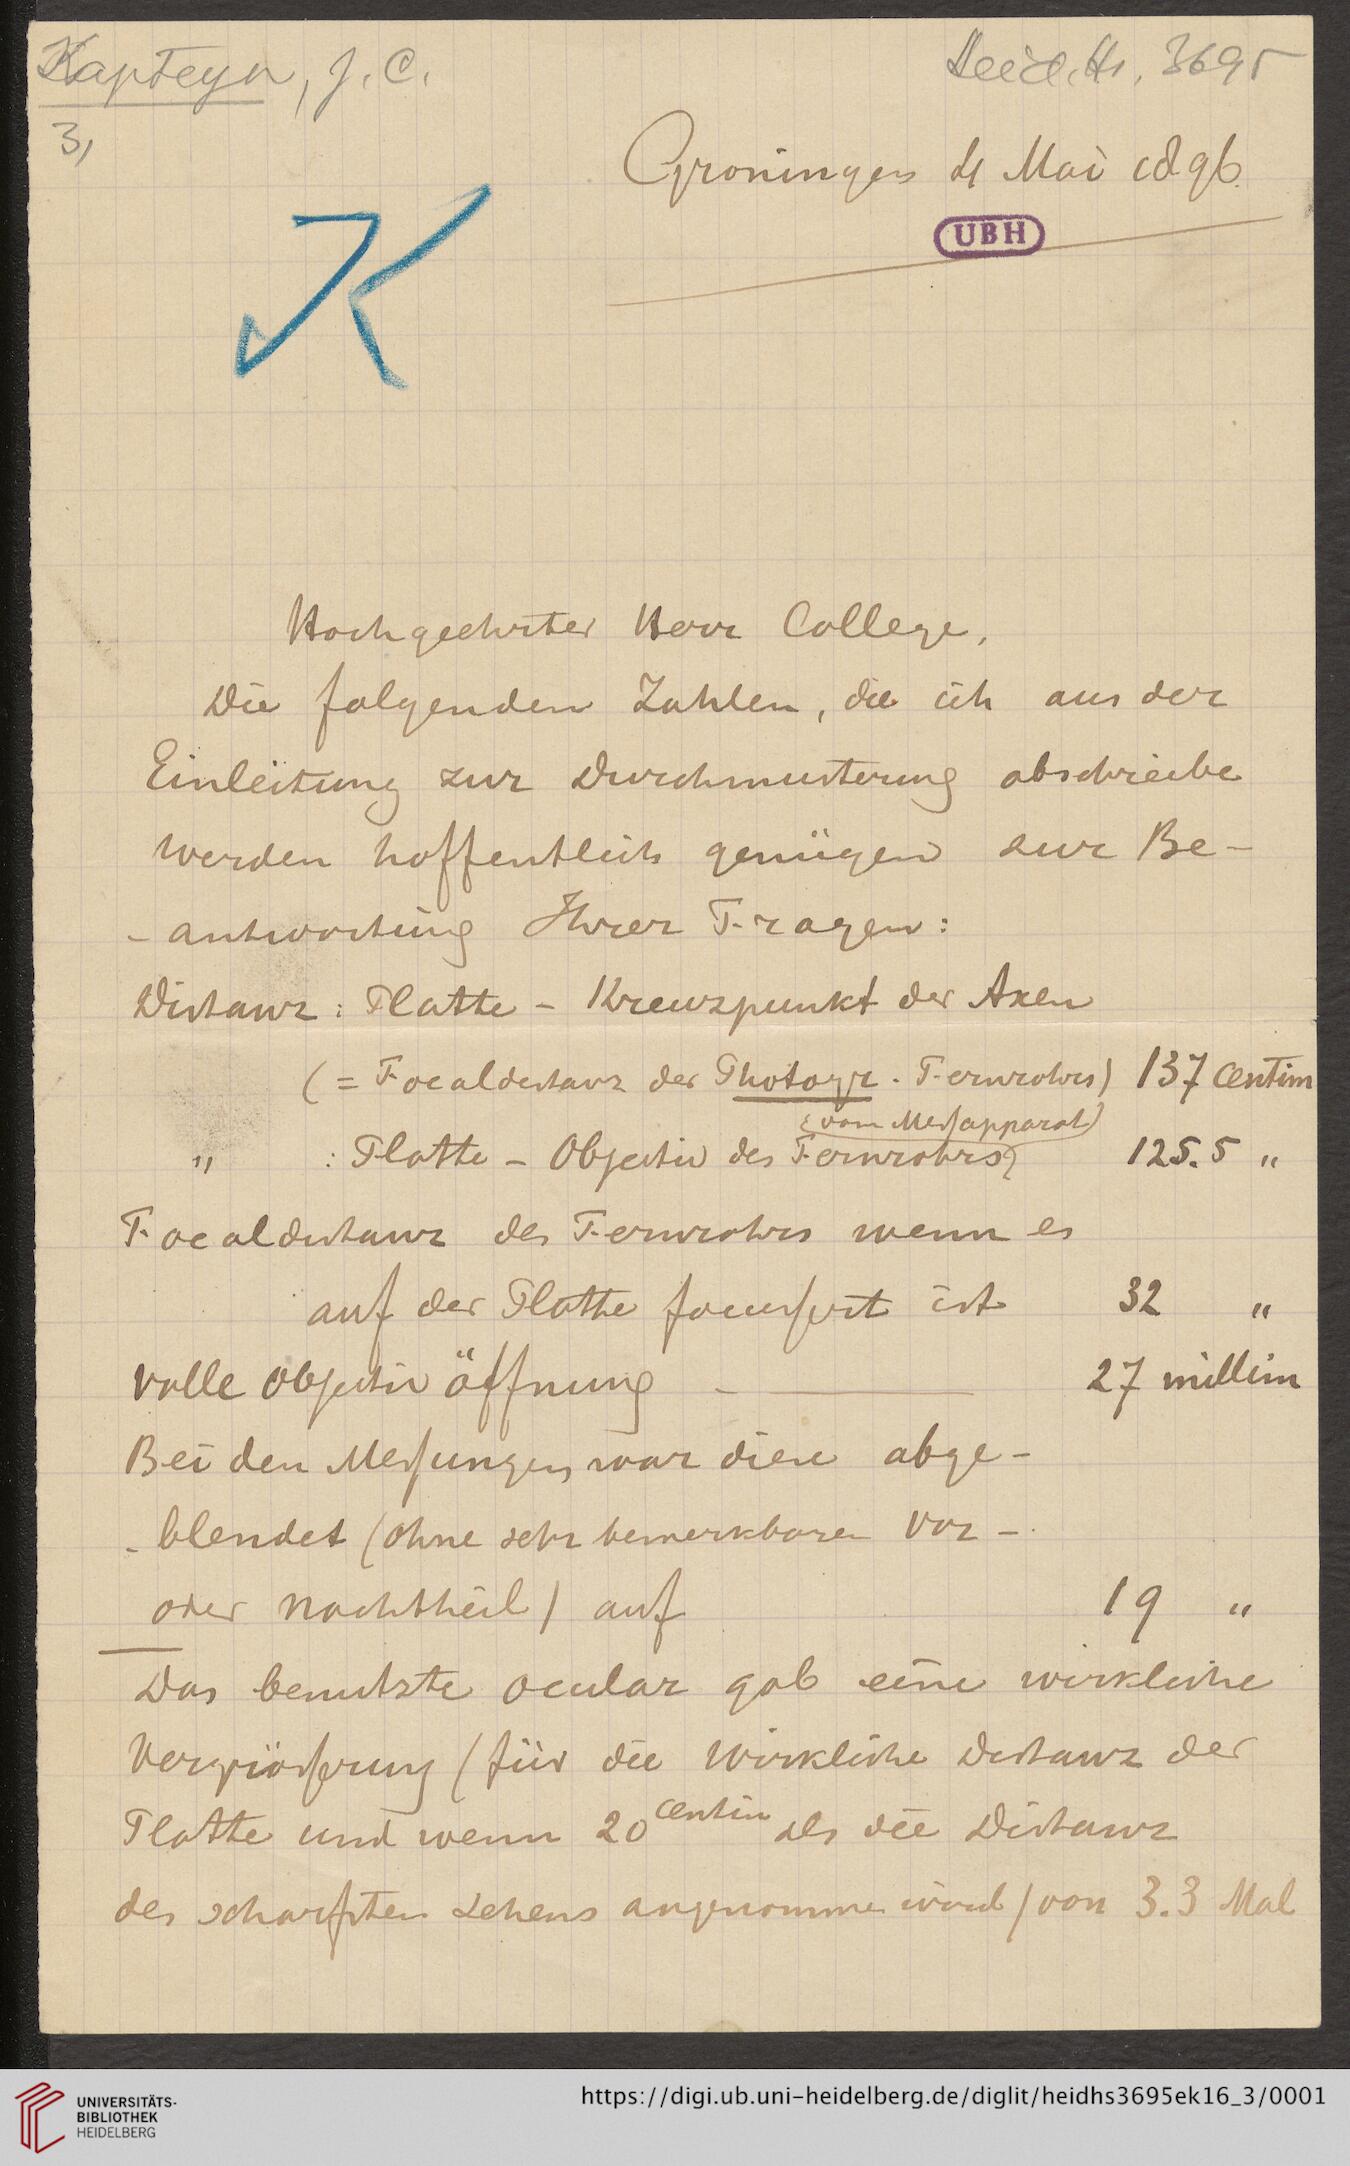 Kapteyn, J. C.
Heid. Hs. 3695
3,
Groningen 4 Mai 1896.
UBH
K
Hochgeehrter Herr College,
Die folgenden Zahlen, die ich aus der
Einleitung zur Durchmusterung abschreibe
werden hoffentlich genügen zur Be-
-antwortung Ihrer Fragen:
Distanz: Platte - Kreuzpunkt der Axen
(= Focaldistanz des Photogr. Fernrohrs) 137 Centim
(vom Meßapparat)
" : Platte - Objectiv des Fernrohrs 125.5 "
Focaldistanz des Fernrohrs wenn es
auf der Platte focussirt ist 32 "
volle Objectiv öffnung - — 27 millim
Bei den Meßungen war diese abge-
-blendet (ohne sehr bemerkbaren Vor-
oder Nachtheil) auf 19 "
Das benutzte Ocular gab eine wirkliche
Vergrösserung (für die wirkliche Distanz der
Platte und wenn 20 centim als die Distanz
des scharfsten Sehens angenommen wird) von 3.3 Mal
UNIVERSITÄTS-
BIBLIOTHEK
HEIDELBERG
https://digi.ub.uni-heidelberg.de/diglit/heidhs3695ek16_3/0001